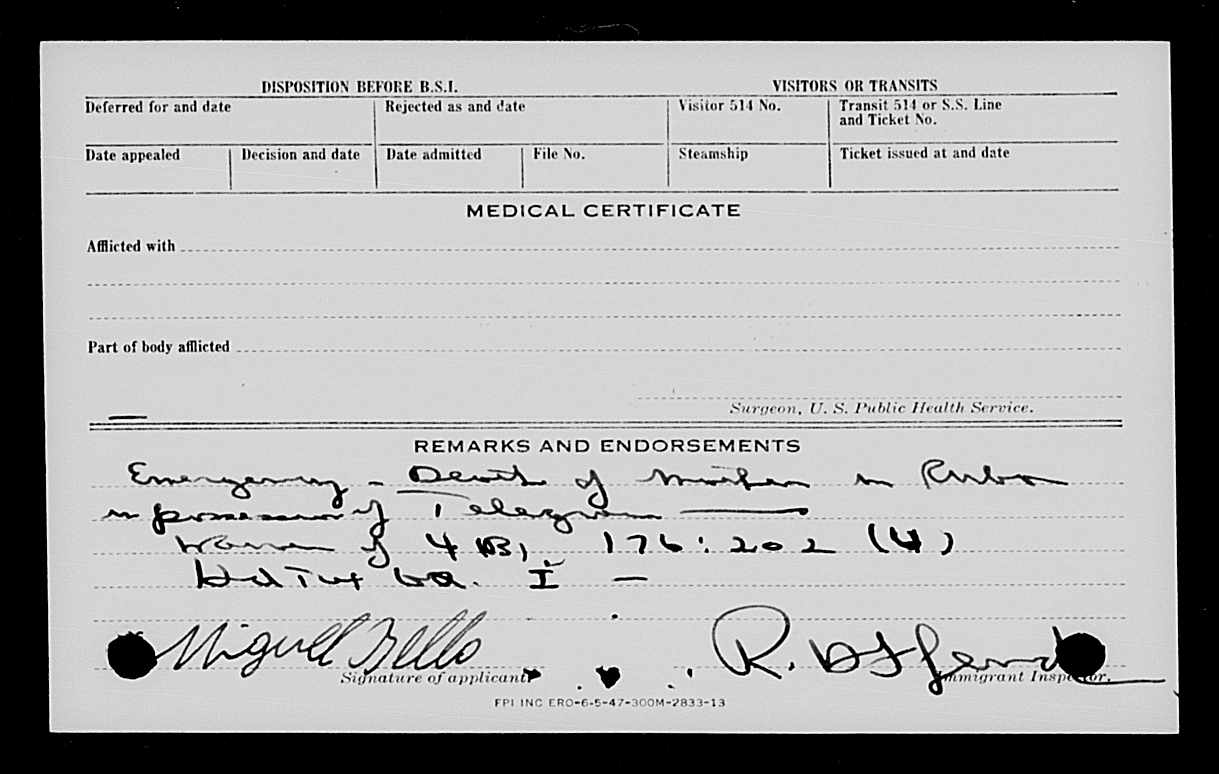 DISPOSITION BEFORE B.S.I.
VISITORS OR TRANSITS
Deferred for and date
Rejected as and date
Visitor 514 No.
Transit 514 or S.S. Line
and Ticket No.
Date appealed
Decision and date
Date admitted
File No.
Steamship
Ticket issued at and date
MEDICAL CERTIFICATE
Afflicted with
Part of body afflicted
Surgeon, U. S. Public Health Service.
REMARKS AND ENDORSEMENTS
Emergency - Death of Mother in
in possession of Telegram
of 4 (B), 176:202 (4)
I —
Miguel Bello
R.
Signature of applicant
Immigrant Inspector.
FPI INC ERO-6-5-47-300M-2833-13